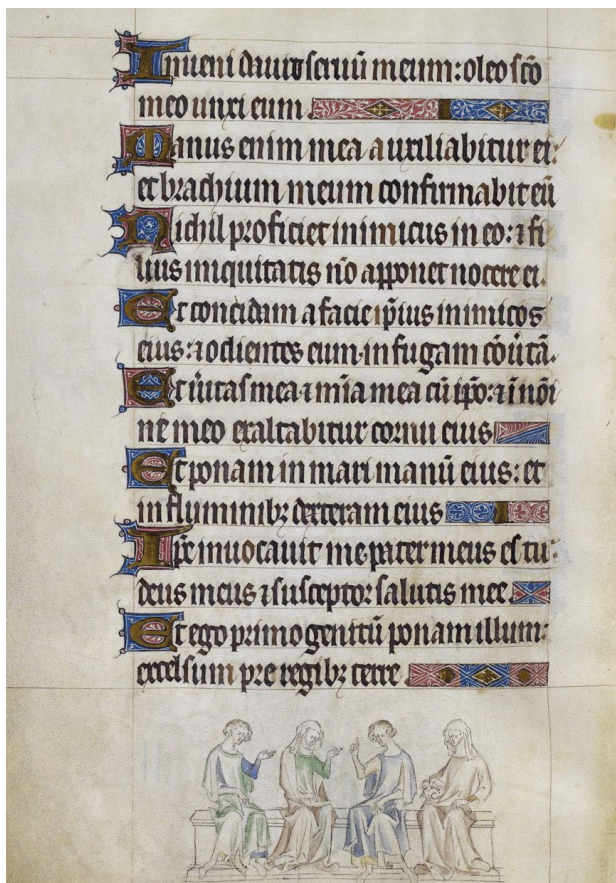 Inueni dauid seruū meum: oleo sc̄o
meo unxi eum.
Manus enim mea auxiliabitur ei:
et brachium meum confirmabit eū
Nichil proficiet inimicus in eo: ⁊ fi
lius iniquitatis nō apponet nocere ei.
Et concidam a facie ip̄ius inimicos
eius: ⁊ odientes eum in fugam
Et ūitas mea ⁊ mīa mea cū ip̄o: ⁊ ī nōi
nē meo exaltabitur cornu eius
Et ponam in mari manū eius: et
in fluminibꝫ dexteram eius
Ip̄e inuocauit me pater meus es tu:
deus meus ⁊ susceptor salutis mee.
Et ego primogenitū ponam illum:
excelsum pre regibꝫ terre